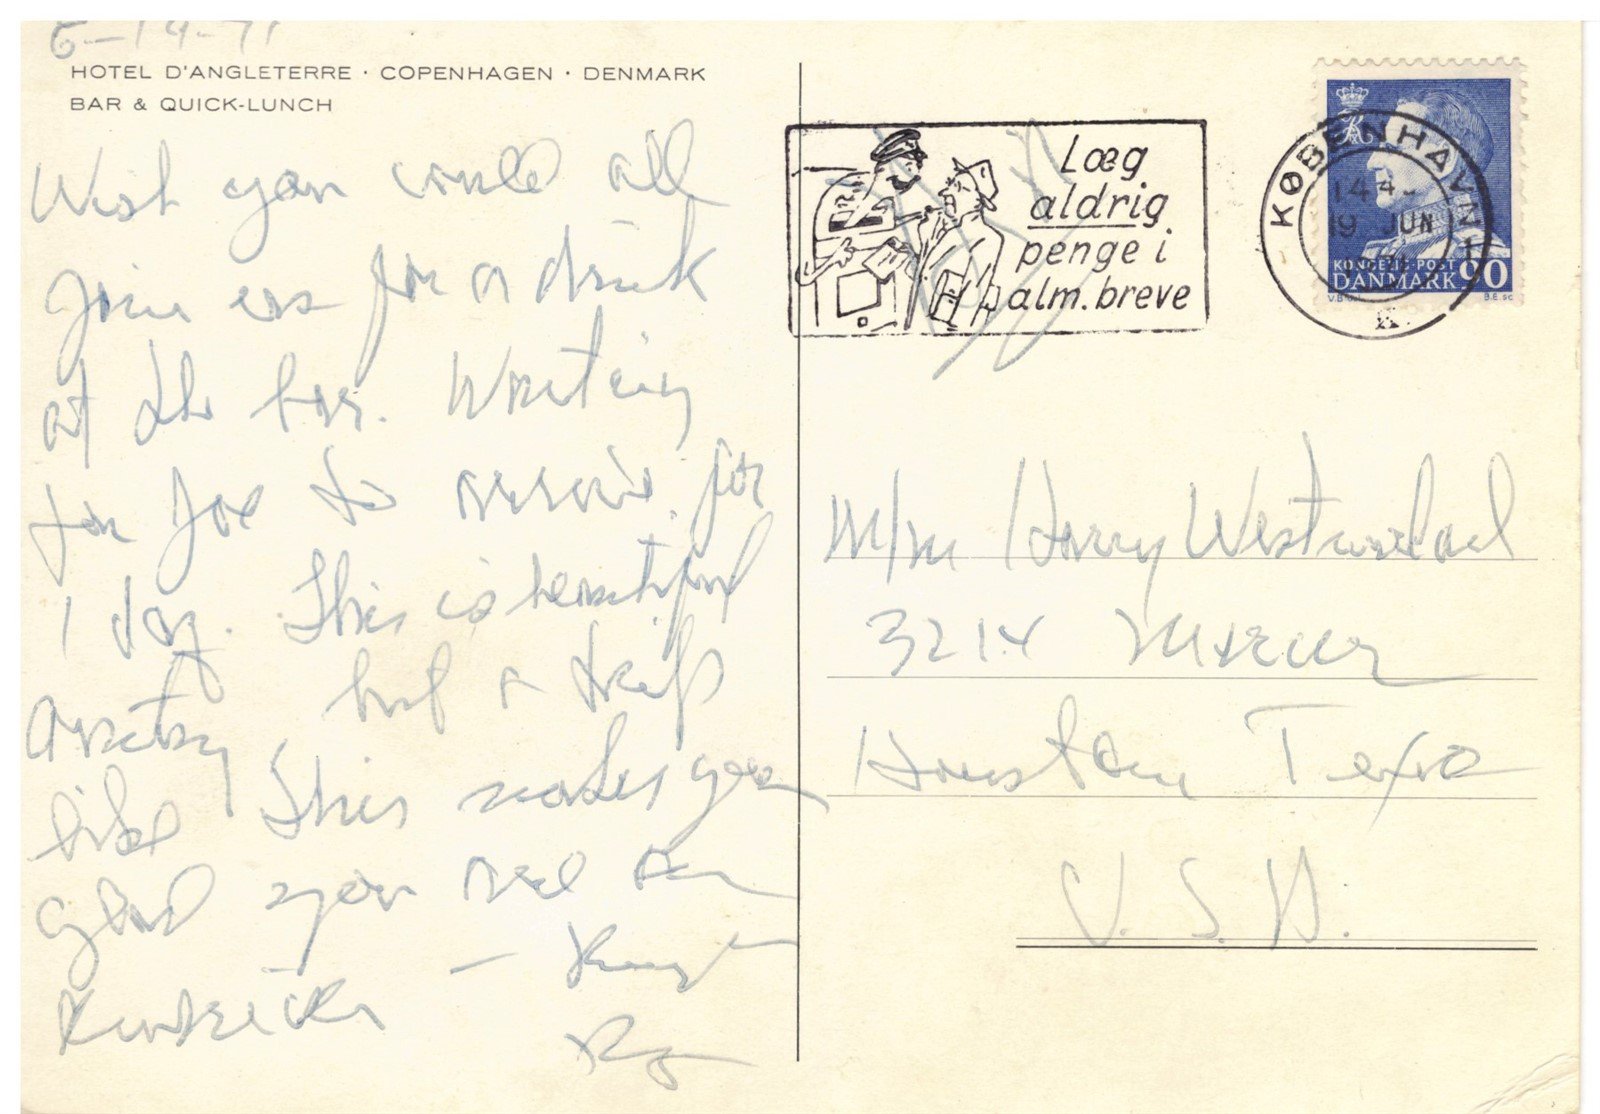 6-14-71
HOTEL D'ANGLETERRE · COPENHAGEN · DENMARK
BAR & QUICK-LUNCH
Wish you could all
join us for a drink
at the bar. Waiting
for Joe to arrive for
1 day. This is beautiful
country but a trip
like this makes you
glad you are an
American
Læg
aldrig
penge i
alm. breve
KØBENHAVN
19 JUN
KONGELIG POST
DANMARK 90
M/m Harry Westmoreland
3214 Mercer
Houston Texas
U.S.A.